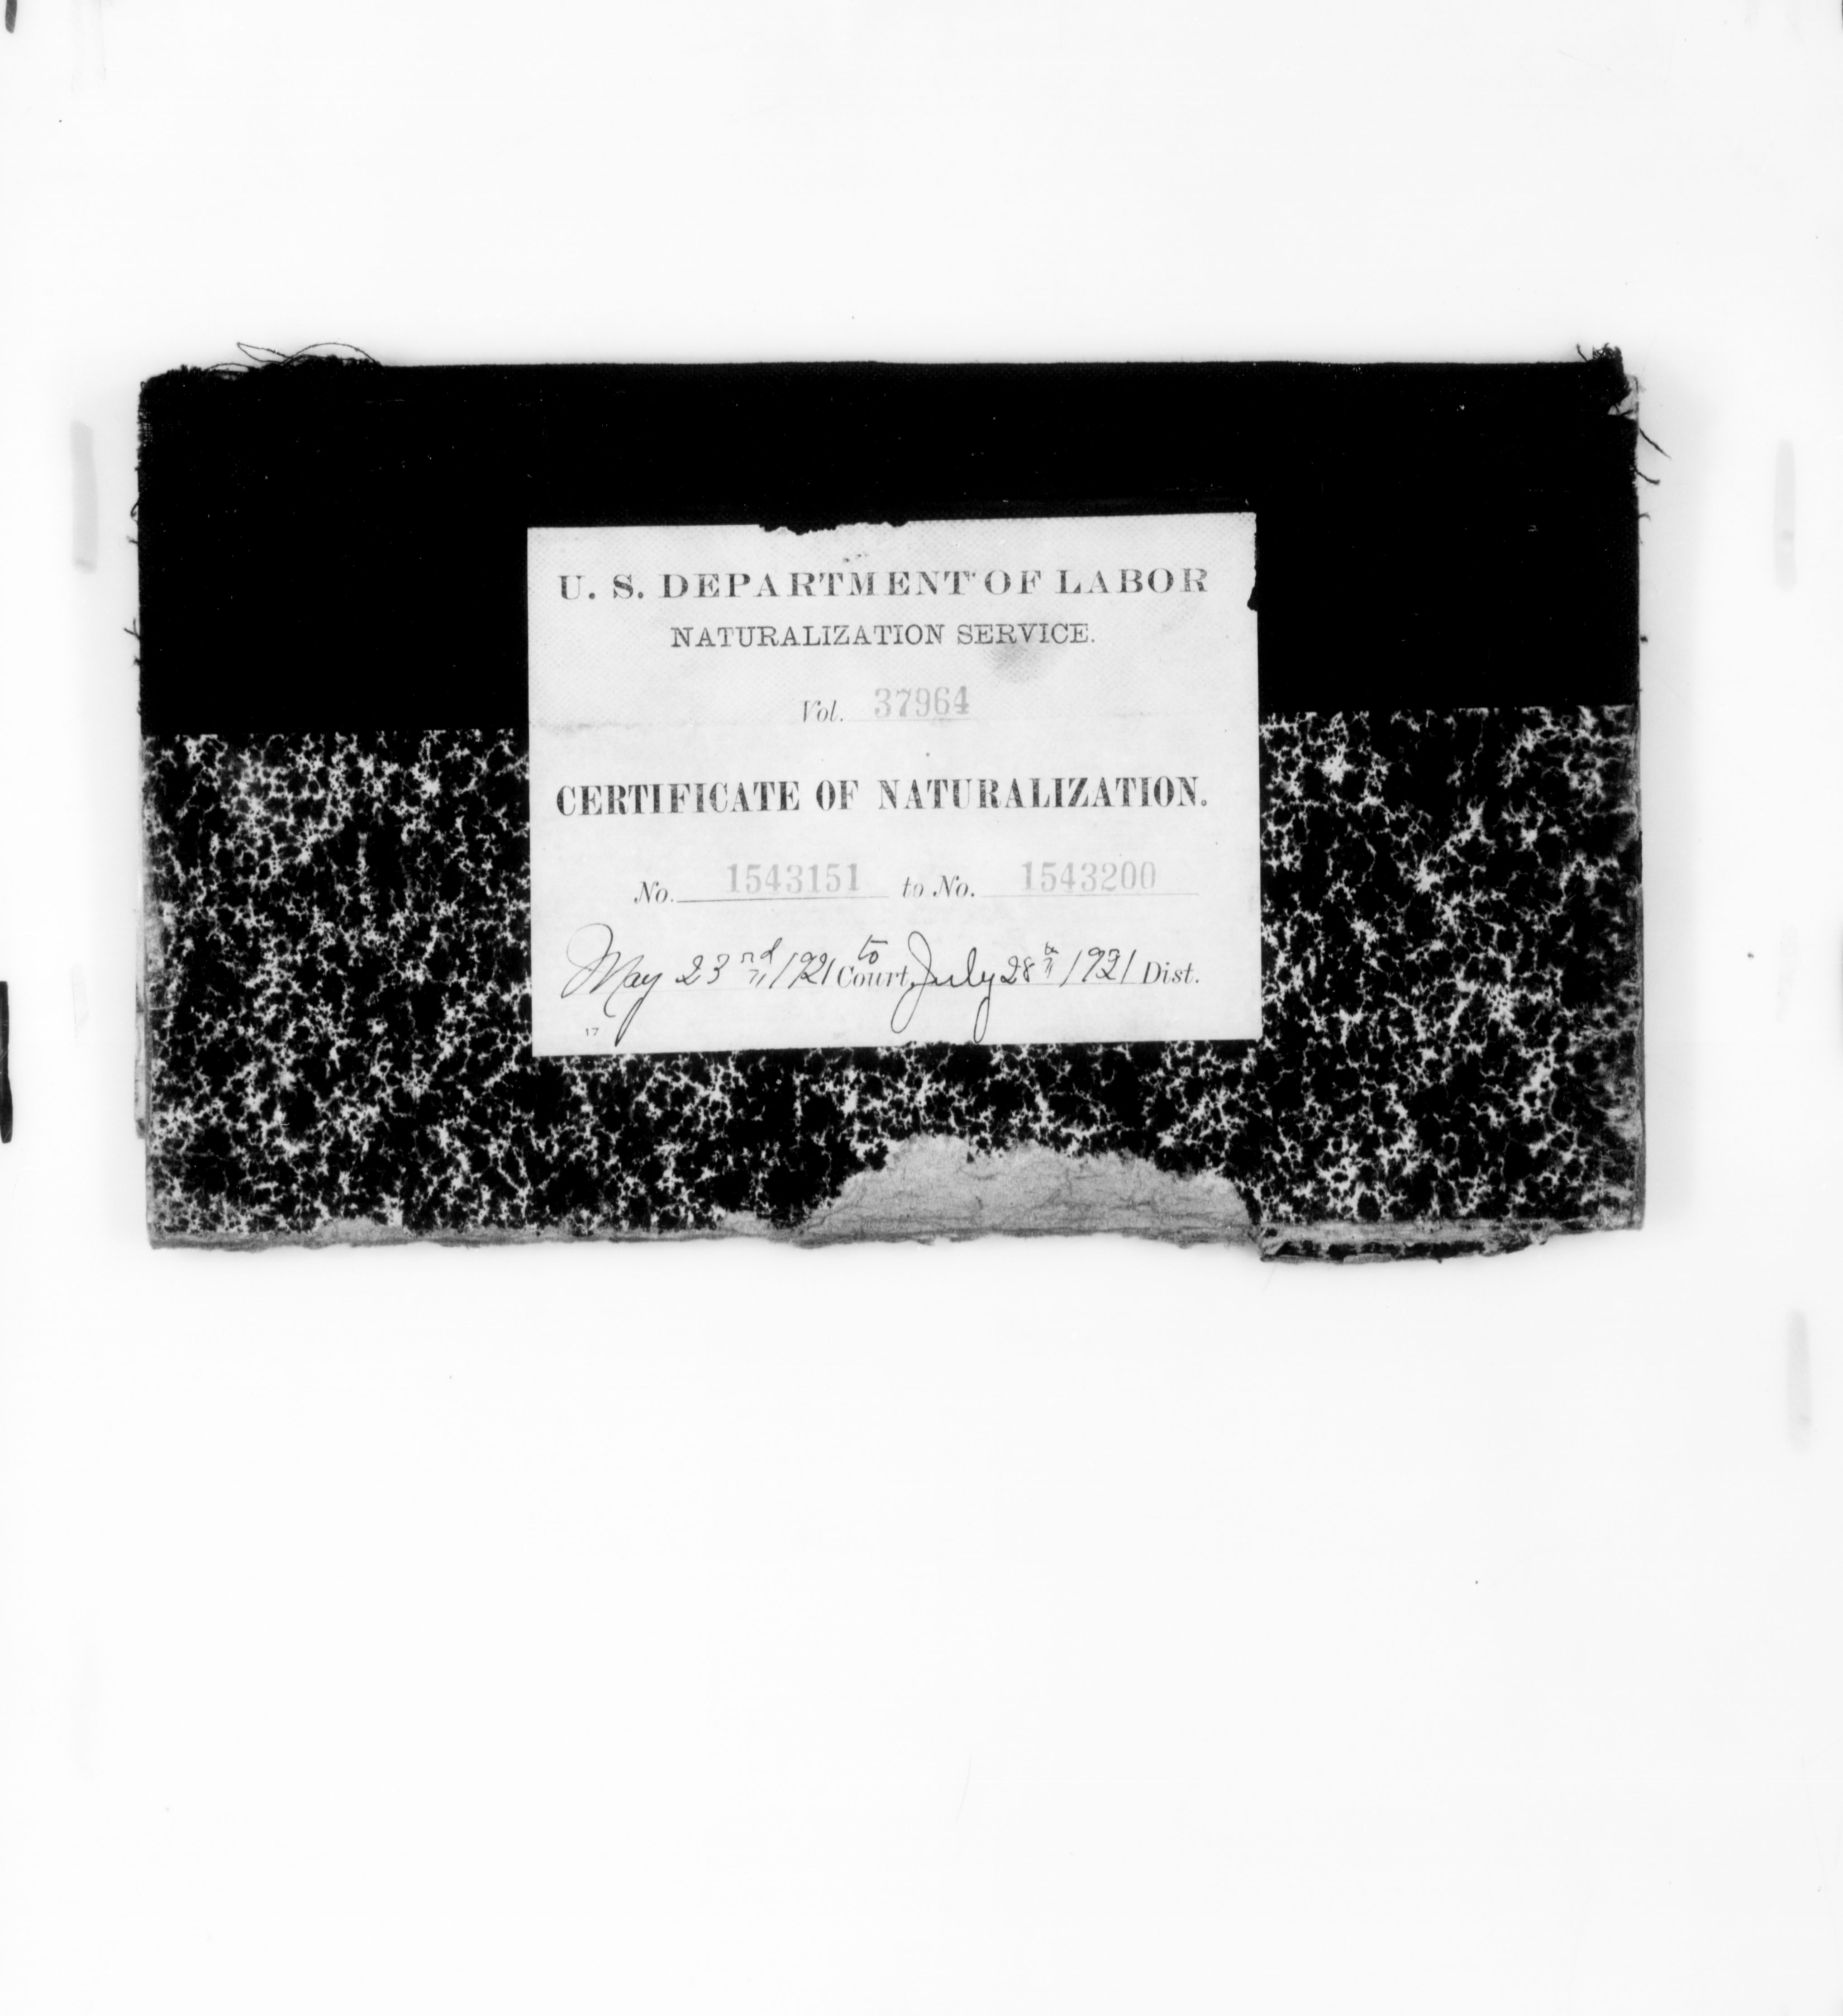 U. S. DEPARTMENT OF LABOR
NATURALIZATION SERVICE.
Vol. 37964
CERTIFICATE OF NATURALIZATION.
No. 1543151 to No. 1543200
May 23rd/1921 to Court, July 28th/1921 Dist.
17